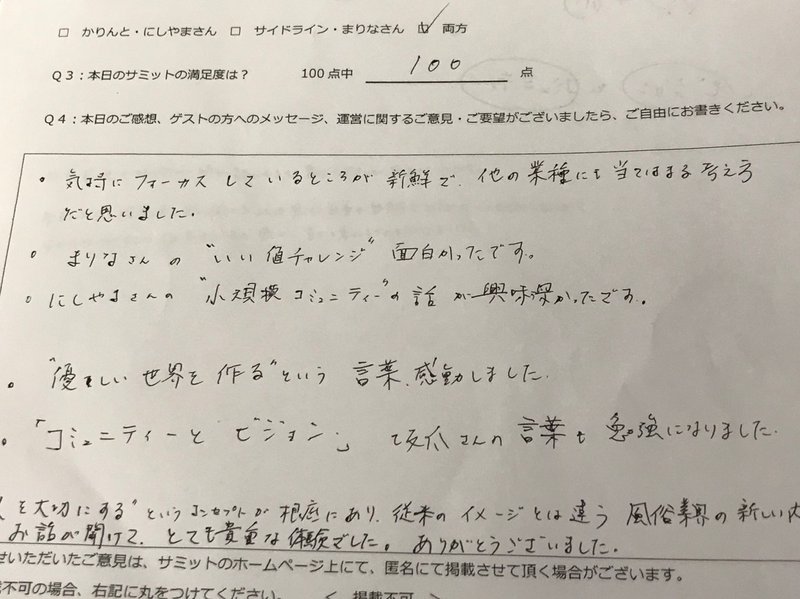 □ かりんと・にしやまさん □ サイドライン・まりなさん ☑ 両方
Q3：本日のサミットの満足度は？ 100点中 100 点
Q4：本日のご感想、ゲストの方へのメッセージ、運営に関するご意見・ご要望がございましたら、ご自由にお書きください。
・気持にフォーカスしているところが新鮮で、他の業種にも当てはまる考え方
だと思いました。
・まりなさんの"いい値チャレンジ"面白かったです。
・にしやまさんの"小規模コミュニティー"の話が興味深かったです。
・"優しい世界を作る"という言葉、感動しました。
・「コミュニティーとビジョン」 坂爪さんの言葉も勉強になりました。
を大切にする"というコンセプトが根底にあり、従来のイメージとは違う風俗業界の新しい
お話が聞けて、とても貴重な体験でした。ありがとうございました。
せいただいたご意見は、サミットのホームページ上にて、匿名にて掲載させて頂く場合がございます。
不可の場合、右記に丸をつけてください。 < 掲載不可 >